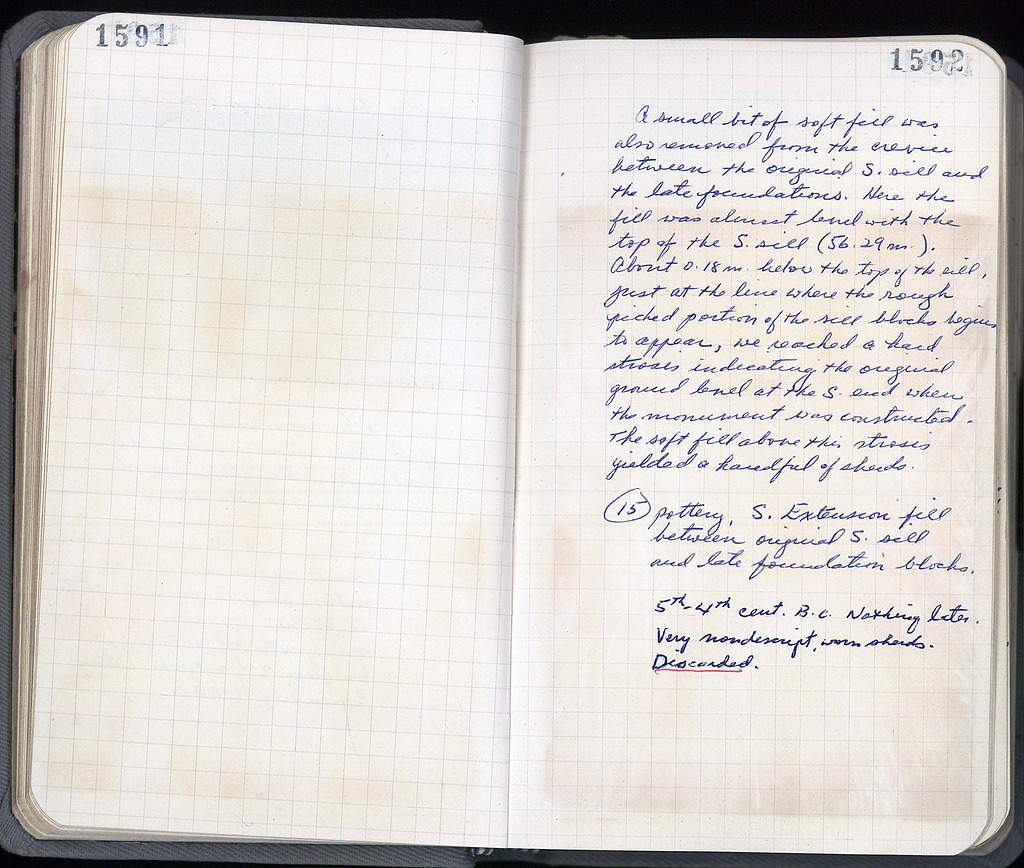 1591
1592
A small bit of soft fill was
also removed from the crevice
between the original S. sill and
the late foundations. Here the
fill was almost level with the
top of the S. sill (56.29 m.).
About 0.18 m. below the top of the sill,
just at the line where the rough
picked portion of the sill blocks begins
to appear, we reached a hard
stroses indicating the original
ground level at the S. end when
the monument was constructed.
The soft fill above this strosis
yielded a handful of sherds.
15 pottery, S. Extension fill
between original S. sill
and late foundation blocks.
5th-4th cent. B.C. Nothing later.
Very nondescript, worn sherds.
Discarded.